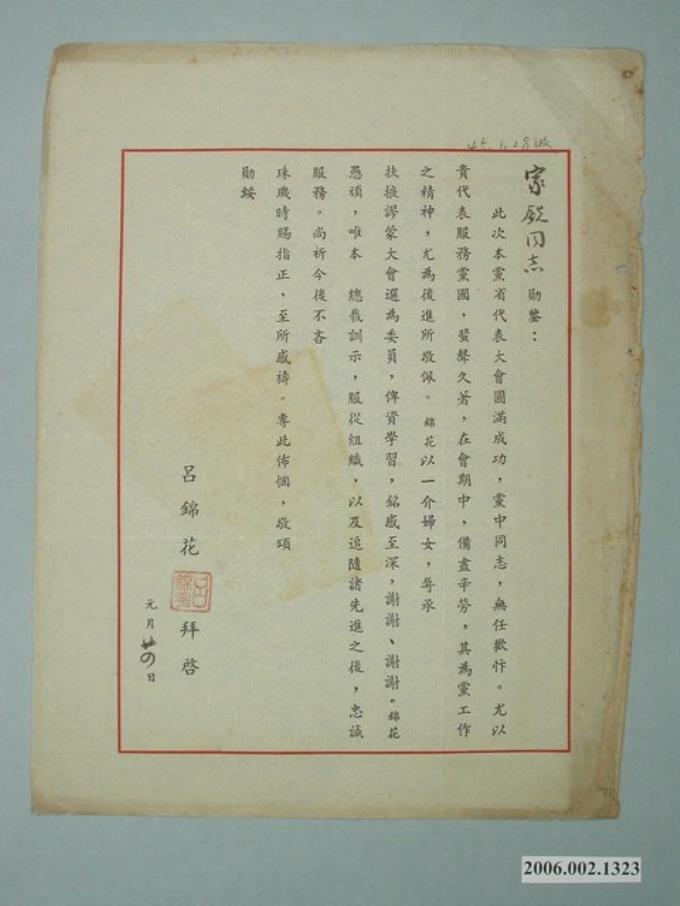 45.1.28收
家 同志勛鑒：
此次本黨省代表大會圓滿成功，黨中同志，無任歡忭。尤以
貴代表服務黨國，蜚聲久著，在會期中，備盡辛勞，其為黨工作
之精神，尤為後進所敬佩。錦花以一介婦女，辱承
扶掖謬蒙大會選為委員，俾資學習，銘感至深，謝謝、謝謝。錦花
愚頑，唯本　總裁訓示，服從組織，以及追隨諸先進之後，忠誠
服務。尚祈今後不吝
珠璣時賜指正，至所感禱。專此佈悃，敬頌
勛綏
呂錦花
呂錦花
拜啓
元月廿四日
2006.002.1323